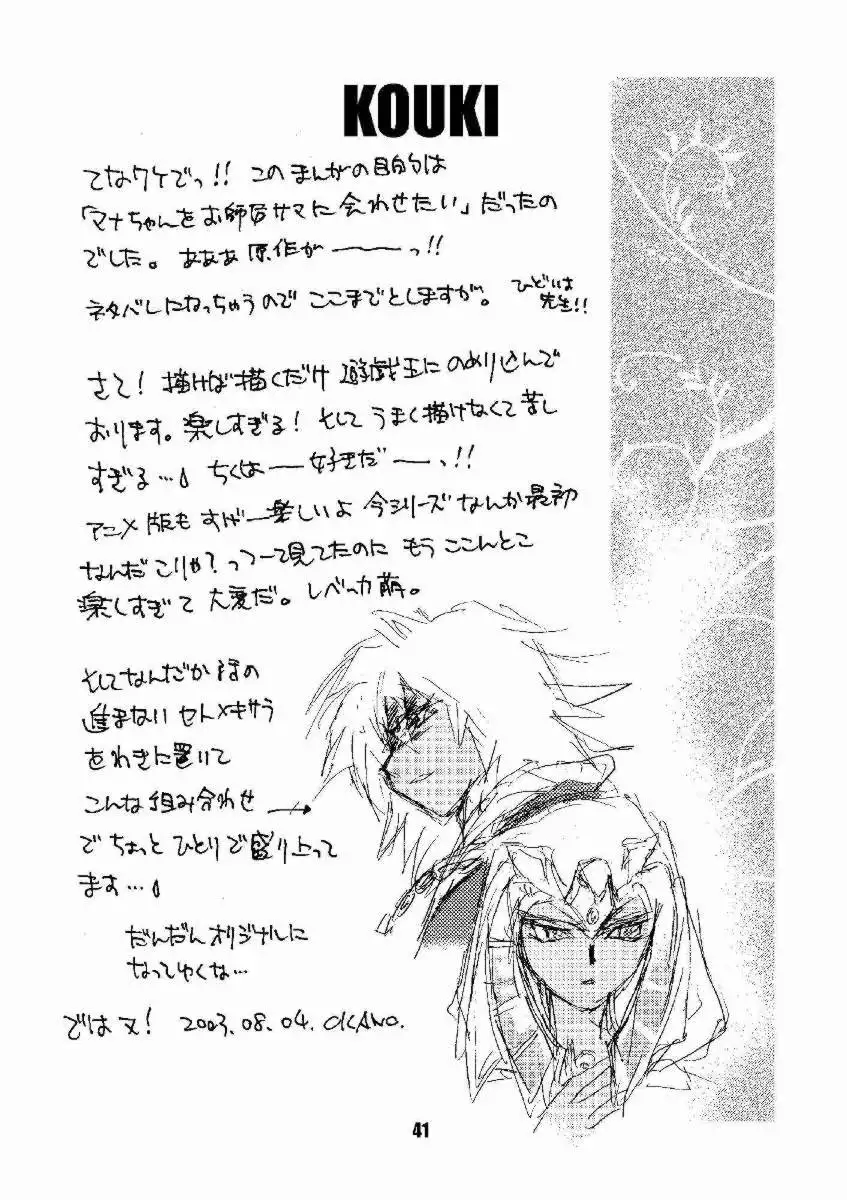 KOUKI
てなワケでっ!! このまんがの目的は
「マナちゃんをお師匠サマに会わせたい」だったの
でした。あああ 原作が———っ!!
ネタバレになっちゃうので ここまでとしますが。 ひどいは
先生!!
さて! 描けば描くだけ 遊戯王に のめり込んで
おります。楽しすぎる! そして うまく描けなくて 苦し
すぎる… ちくは——好きだ——っ!!
アニメ版も すげー楽しいよ 今シリーズ なんか最初
なんだこりゃ? っつーて見てたのに もう ここんとこ
楽しすぎて 大変だ。レベッカ萌。
そしてなんだか 話の
進まない セト×キサラ
をわきに置いて
こんな 組み合わせ →
で ちょっと ひとりで盛り上って
ます…
だんだん オリジナルに
なってゆくな…
ではまた! 2003.08.04. OKANO.
41